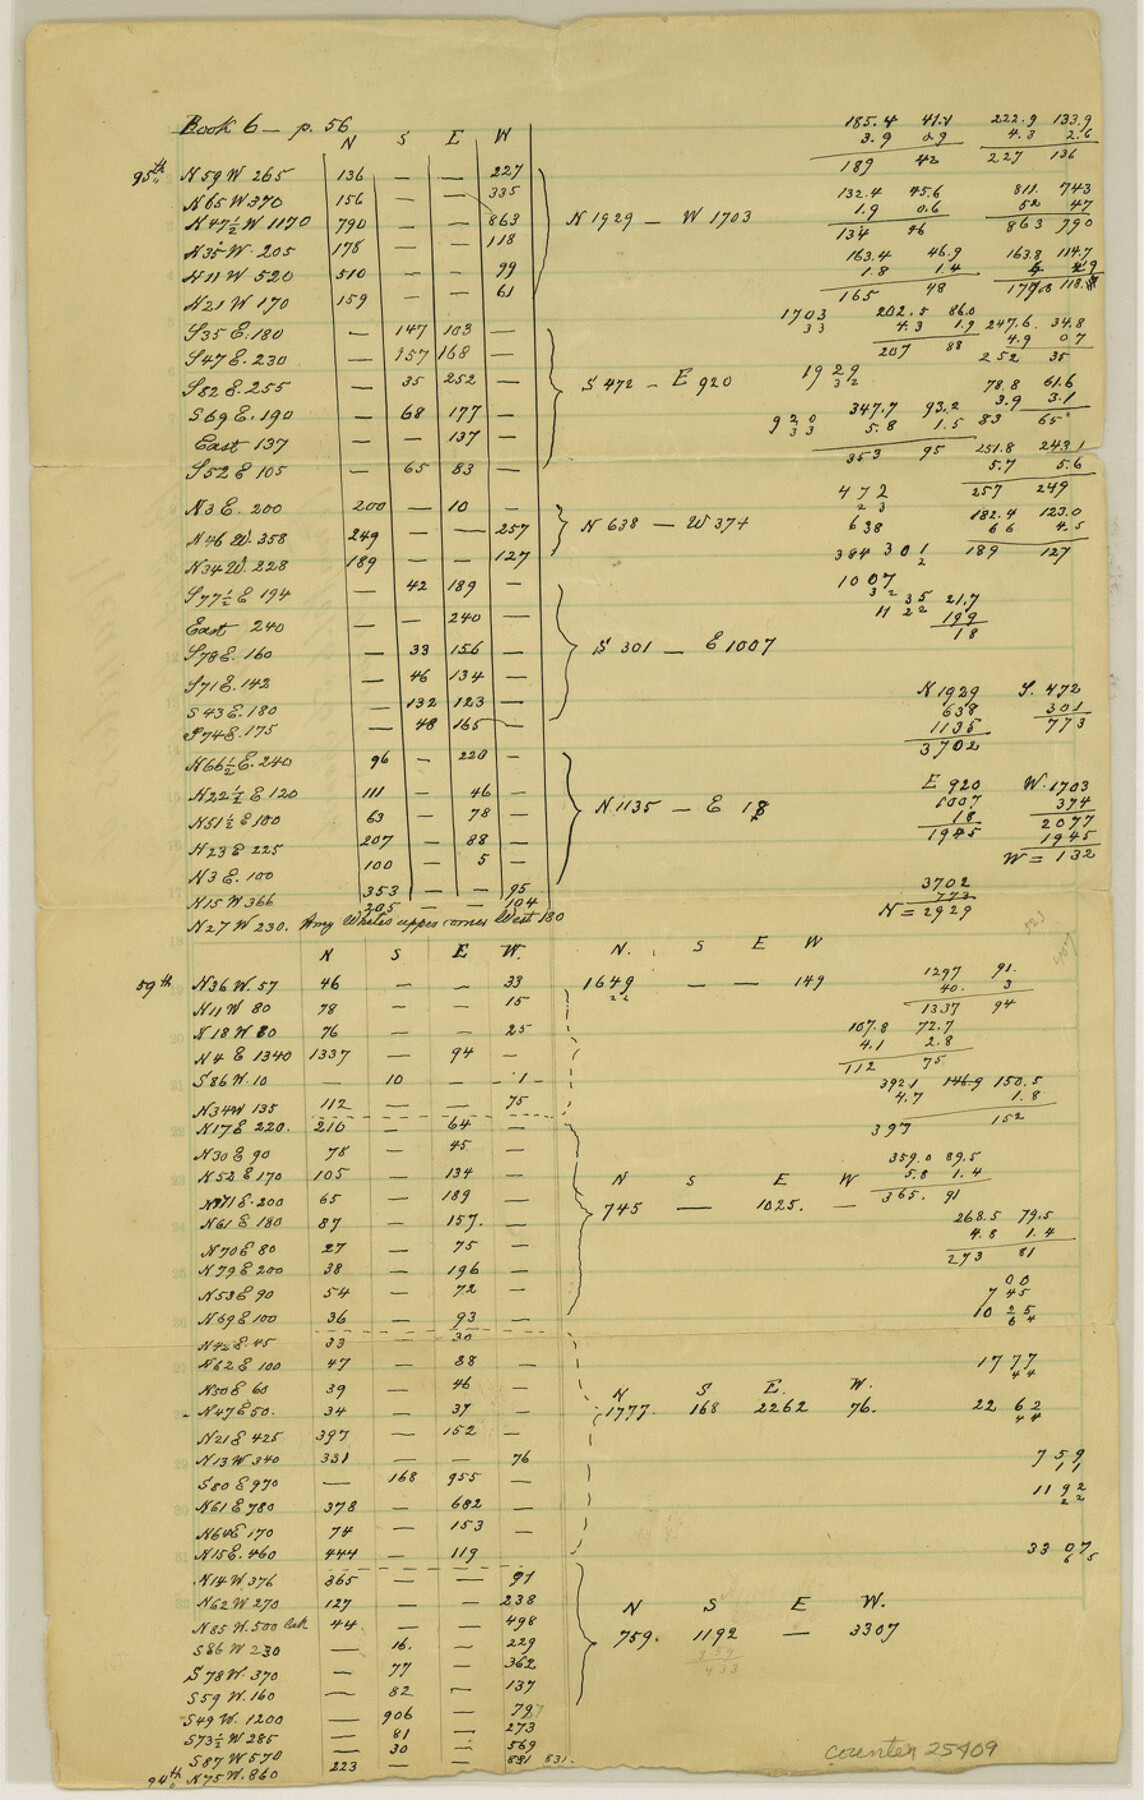 Book 6 — p. 56
N S E W
95th N 59 W 265 136 — — 227
N 65 W 370 156 — — 335
N 47½ W 1170 790 — — 863
N 35 W. 205 178 — — 118
N 11 W 520 510 — — 99
N 21 W 170 159 — — 61
N 1929 — W 1703
S 35 E. 180 — 147 103 —
S 47 E. 230 — 157 168 —
S 82 E. 255 — 35 252 —
S 69 E. 190 — 68 177 —
East 137 — — 137 —
S 52 E 105 — 65 83 —
S 472 — E 920
N 3 E. 200 200 — 10 —
N 46 W. 358 249 — — 257
N 34 W. 228 189 — — 127
N 638 — W 374
S 77½ E 194 — 42 189 —
East 240 — — 240 —
S 78 E. 160 — 33 156 —
S 71 E. 142 — 46 134 —
S 43 E. 180 — 132 123 —
S 74 E. 175 — 48 165 —
S 301 — E 1007
N 66½ E. 240 96 — 220 —
N 22½ E 120 111 — 46 —
N 51½ E 100 63 — 78 —
N 23 E 225 207 — 88 —
N 3 E. 100 100 — 5 —
N 15 W 366 353 — — 95
N 27 W 230. 205 — — 104
Amy Whites upper corner West 180
N 1135 — E 18
185.4 41.1 222.9 133.9
3.9 0.9 4.3 2.6
189 42 227 136
132.4 45.6 811. 743
1.9 0.6 52 47
134 46 863 790
163.4 46.9 163.8 114.7
1.8 1.4
165 48
1703 202.5 86.0 247.6. 34.8
33 4.3 1.9 4.9 0.7
207 88 252 35
1929 78.8 61.6
32 3.9 3.1
920 347.7 93.2 83 65
33 5.8 1.5
353 95 251.8 243.1
5.7 5.6
472 257 249
23
638 182.4 123.0
6 6 4.5
384 301 189 127
2
1007
32
35 21.7
11 22 199
18
N 1929 S. 472
638 301
1135 773
3702
E 920 W. 1703
1007 374
18 2077
1945 1945
W = 132
3702
773
N = 2929
N S E W.
59th N 36 W. 57 46 — — 33
N 11 W 80 78 — — 15
N 18 W 80 76 — — 25
N 4 E 1340 1337 — 94 —
S 86 W. 10 — 10 — 1
N 34 W 135 112 — — 75
N. S E W
1649 — — 149
22
N 17 E 220. 210 — 64 —
N 30 E 90 78 — 45 —
N 52 E 170 105 — 134 —
N 71 E. 200 65 — 189 —
N 61 E 180 87 — 157. —
N 70 E 80 27 — 75 —
N 79 E 200 38 — 196 —
N 53 E 90 54 — 72 —
N 69 E 100 36 — 93 —
N S E W
745 — 1025. —
N 42 E. 45 33 — 30
N 62 E 100 47 — 88 —
N 50 E 60 39 — 46 —
N 47 E 50. 34 — 37 —
N 21 E 425 397 — 152 —
N 13 W 340 331 — — 76
S 80 E 970 — 168 955 —
N 61 E 780 378 — 682 —
N 64 E 170 74 — 153 —
N 15 E. 460 444 — 119
N S E. W.
1777. 168 2262 76.
N 14 W 376 365 — — 91
N 62 W 270 127 — — 238
N 85 W. 500 44 — — 498
S 86 W 230 — 16. — 229
S 78 W. 370 — 77 — 362
S 59 W. 160 — 82 — 137
S 49 W. 1200 — 906 — 787
S 73½ W 285 — 81 — 273
S 87 W 570 — 30 — 569
94th N 75 W. 860 223 — — 831 831.
N S E W.
759. 1192 — 3307
759
433
1297 91.
40. 3
1337 94
107.8 72.7
4.1 2.8
112 75
392.1 146.9 150.5
4.7 1.8
397 152
359.0 89.5
5.8 1.4
365. 91
268.5 79.5
4.8 1.4
273 81
00
745
10 25
64
1777
44
22 62
44
759
11
1192
22
3307
65
counter 25409